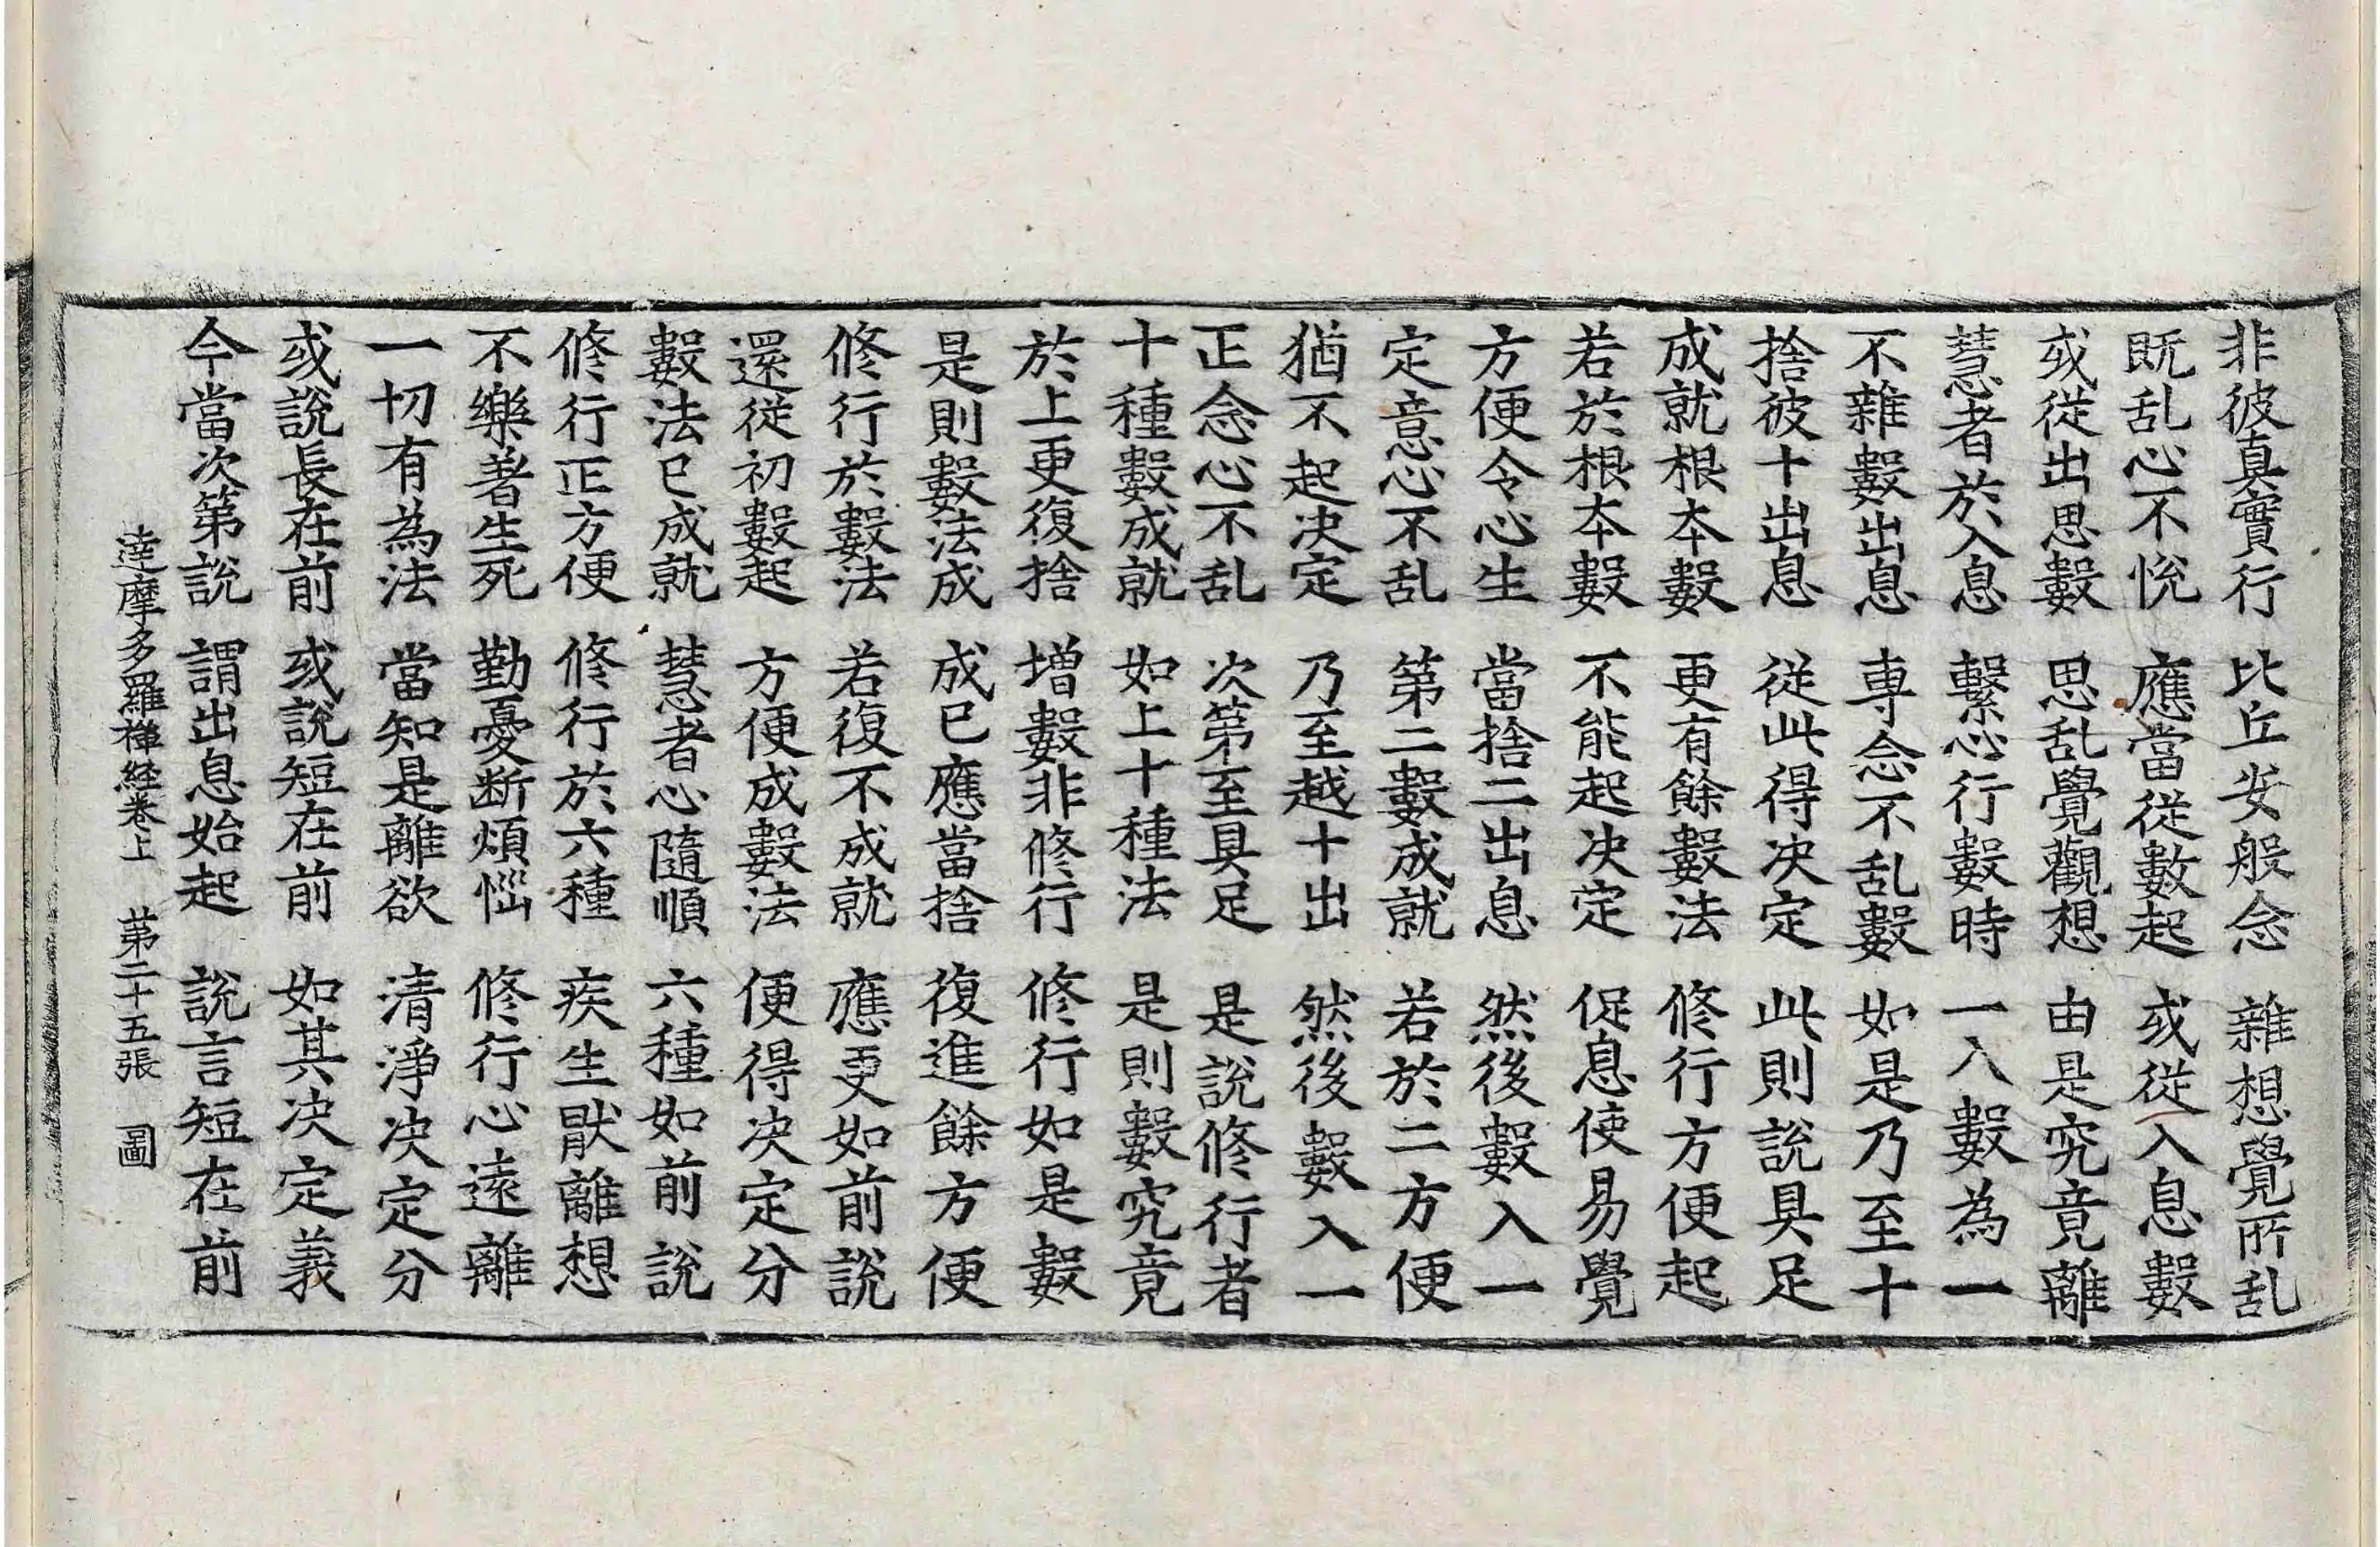 非彼真實行　比丘安般念　雜想覺所乱
既乱心不悅　應當從數起　或從入息數
或從出思數　思乱覺觀想　由是究竟離
慧者於入息　繫心行數時　一入數為一
不雜數出息　専念不乱數　如是乃至十
捨彼十出息　從此得决定　此則說具足
成就根本數　更有餘數法　修行方便起
若於根本數　不能起决定　促息使易覺
方便令心生　當捨二出息　然後數入一
定意心不乱　第二數成就　若於二方便
猶不起决定　乃至越十出　然後數入一
正念心不乱　次第至具足　是說修行者
十種數成就　如上十種法　是則數究竟
於上更復捨　增數非修行　修行如是數
是則數法成　成已應當捨　復進餘方便
修行於數法　若復不成就　應更如前說
還從初數起　方便成數法　便得决定分
數法已成就　慧者心隨順　六種如前說
修行正方便　修行於六種　疾生猒離想
不樂著生死　勤憂断煩惱　修行心遠離
一切有為法　當知是離欲　清淨决定分
或說長在前　或說短在前　如其决定義
今當次第說　謂出息始起　說言短在前
達摩多羅禅経卷上　苐二十五張　圖